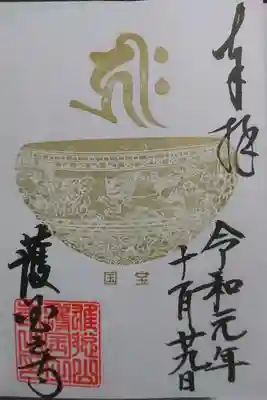 奉拝
令和元年
十一月廿九日
国宝
護国之寺